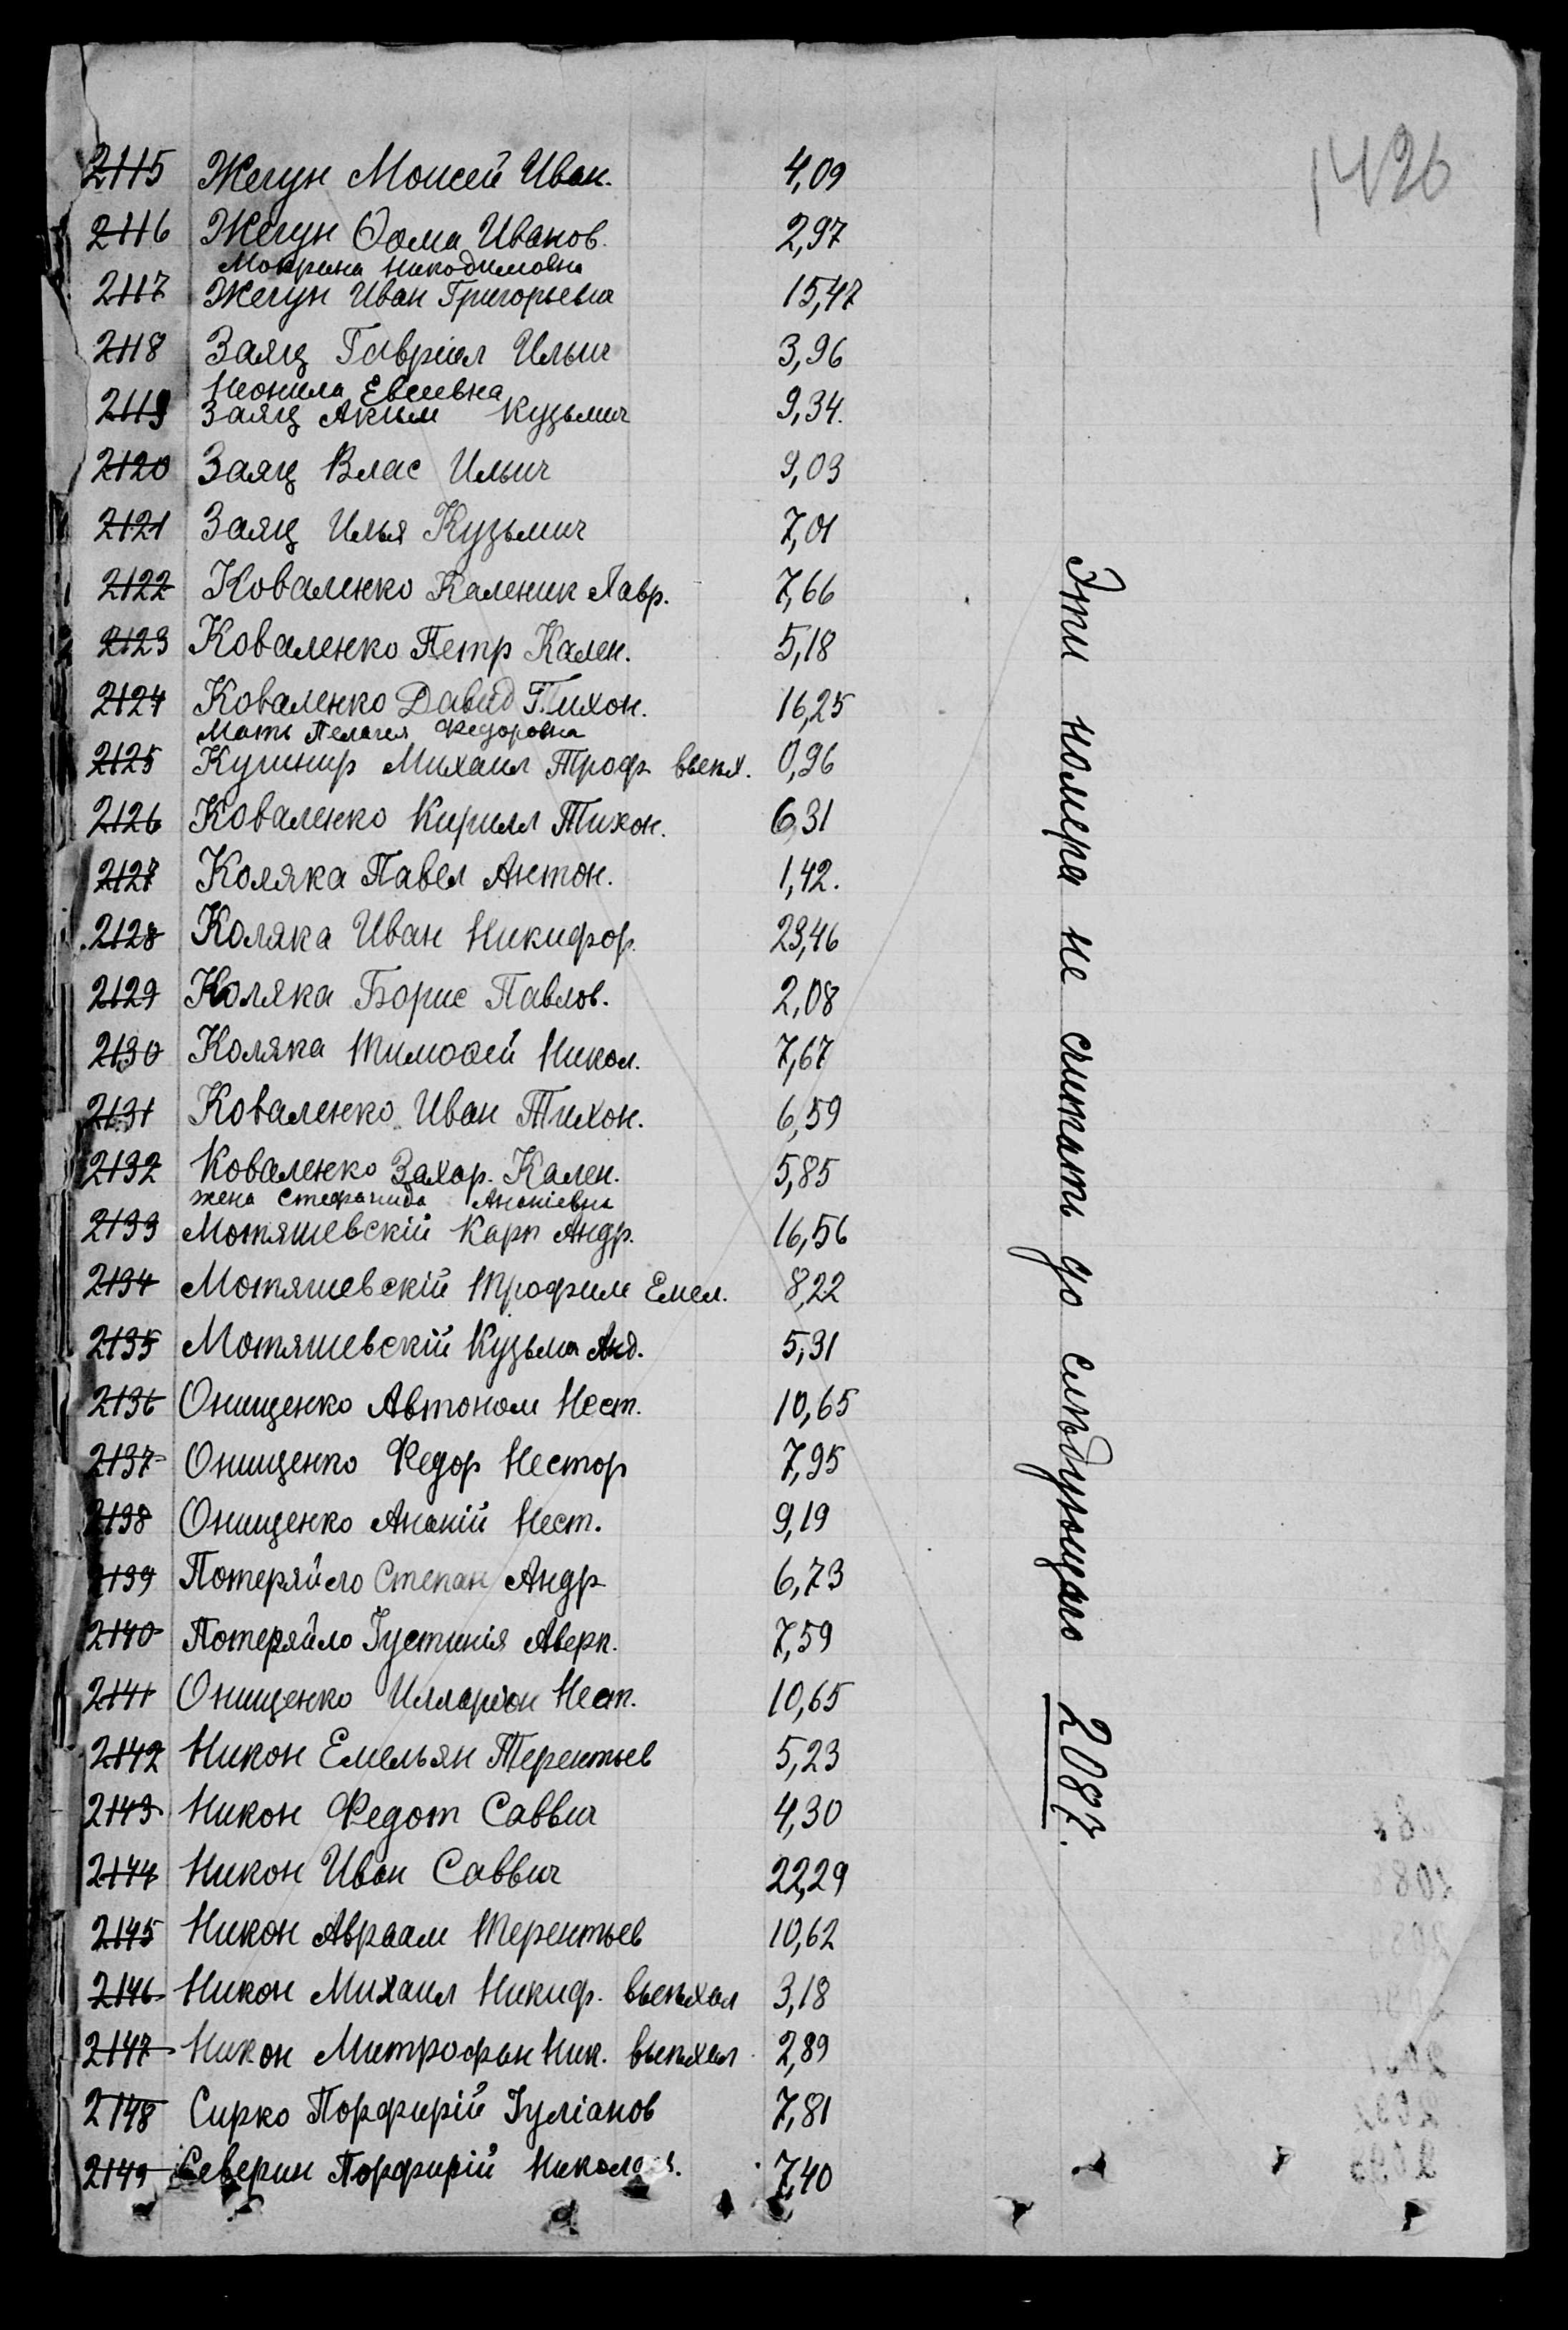 1426
2115 Жегун Моисей Иван. 4,09
2116 Жегун Ѳома Иванов. 2,97
Мокрина Никодимовна
2117 Жегун Иван Григорьевич 15,47
2118 Заяц Гавриил Ильич 3,96
Неонила Евсиевна
2119 Заяц Аким Кузьмич 9,34.
2120 Заяц Влас Ильич 9,03
2121 Заяц Илья Кузьмич 7,01
2122 Коваленко Каленик Лавр. 7,66
2123 Коваленко Петр Кален. 5,18
2124 Коваленко Давид Тихон. 16,25
Мать Пелагея Федоровна
2125 Кушнир Михаил Троф. выех. 0,96
2126 Коваленко Кирилл Тихон. 6,31
2127 Коляка Павел Антон. 1,42.
2128 Коляка Иван Никифор. 23,46
2129 Коляка Борис Павлов. 2,08
2130 Коляка Тимоѳей Никол. 7,67
2131 Коваленко Иван Тихон. 6,59
2132 Коваленко Захар. Кален. 5,85
жена Стефанида Ананіевна
2133 Мотяшевскій Карп Андр. 16,56
2134 Мотяшевскій Трофим Емел. 8,22
2135 Мотяшевскій Кузьма Анд. 5,31
2136 Онищенко Автоном Нест. 10,65
2137 Онищенко Федор Нестор 7,95
2138 Онищенко Ананій Нест. 9,19
2139 Потеряйло Степан Андр 6,73
2140 Потеряйло Іустинія Аверк. 7,59
2141 Онищенко Илларіон Нест. 10,65
2142 Никон Емельян Терентьев 5,23
2143 Никон Федот Саввич 4,30
2144 Никон Иван Саввич 22,29
2145 Никон Авраам Терентьев 10,62
2146 Никон Михаил Никиф. выехал 3,18
2147 Никон Митрофан Ник. выехал 2,89
2148 Сирко Порфирій Іуліанов 7,81
2149 Северин Порфирій 7,40
Эти номера не считать до слѣдующаго 2087.